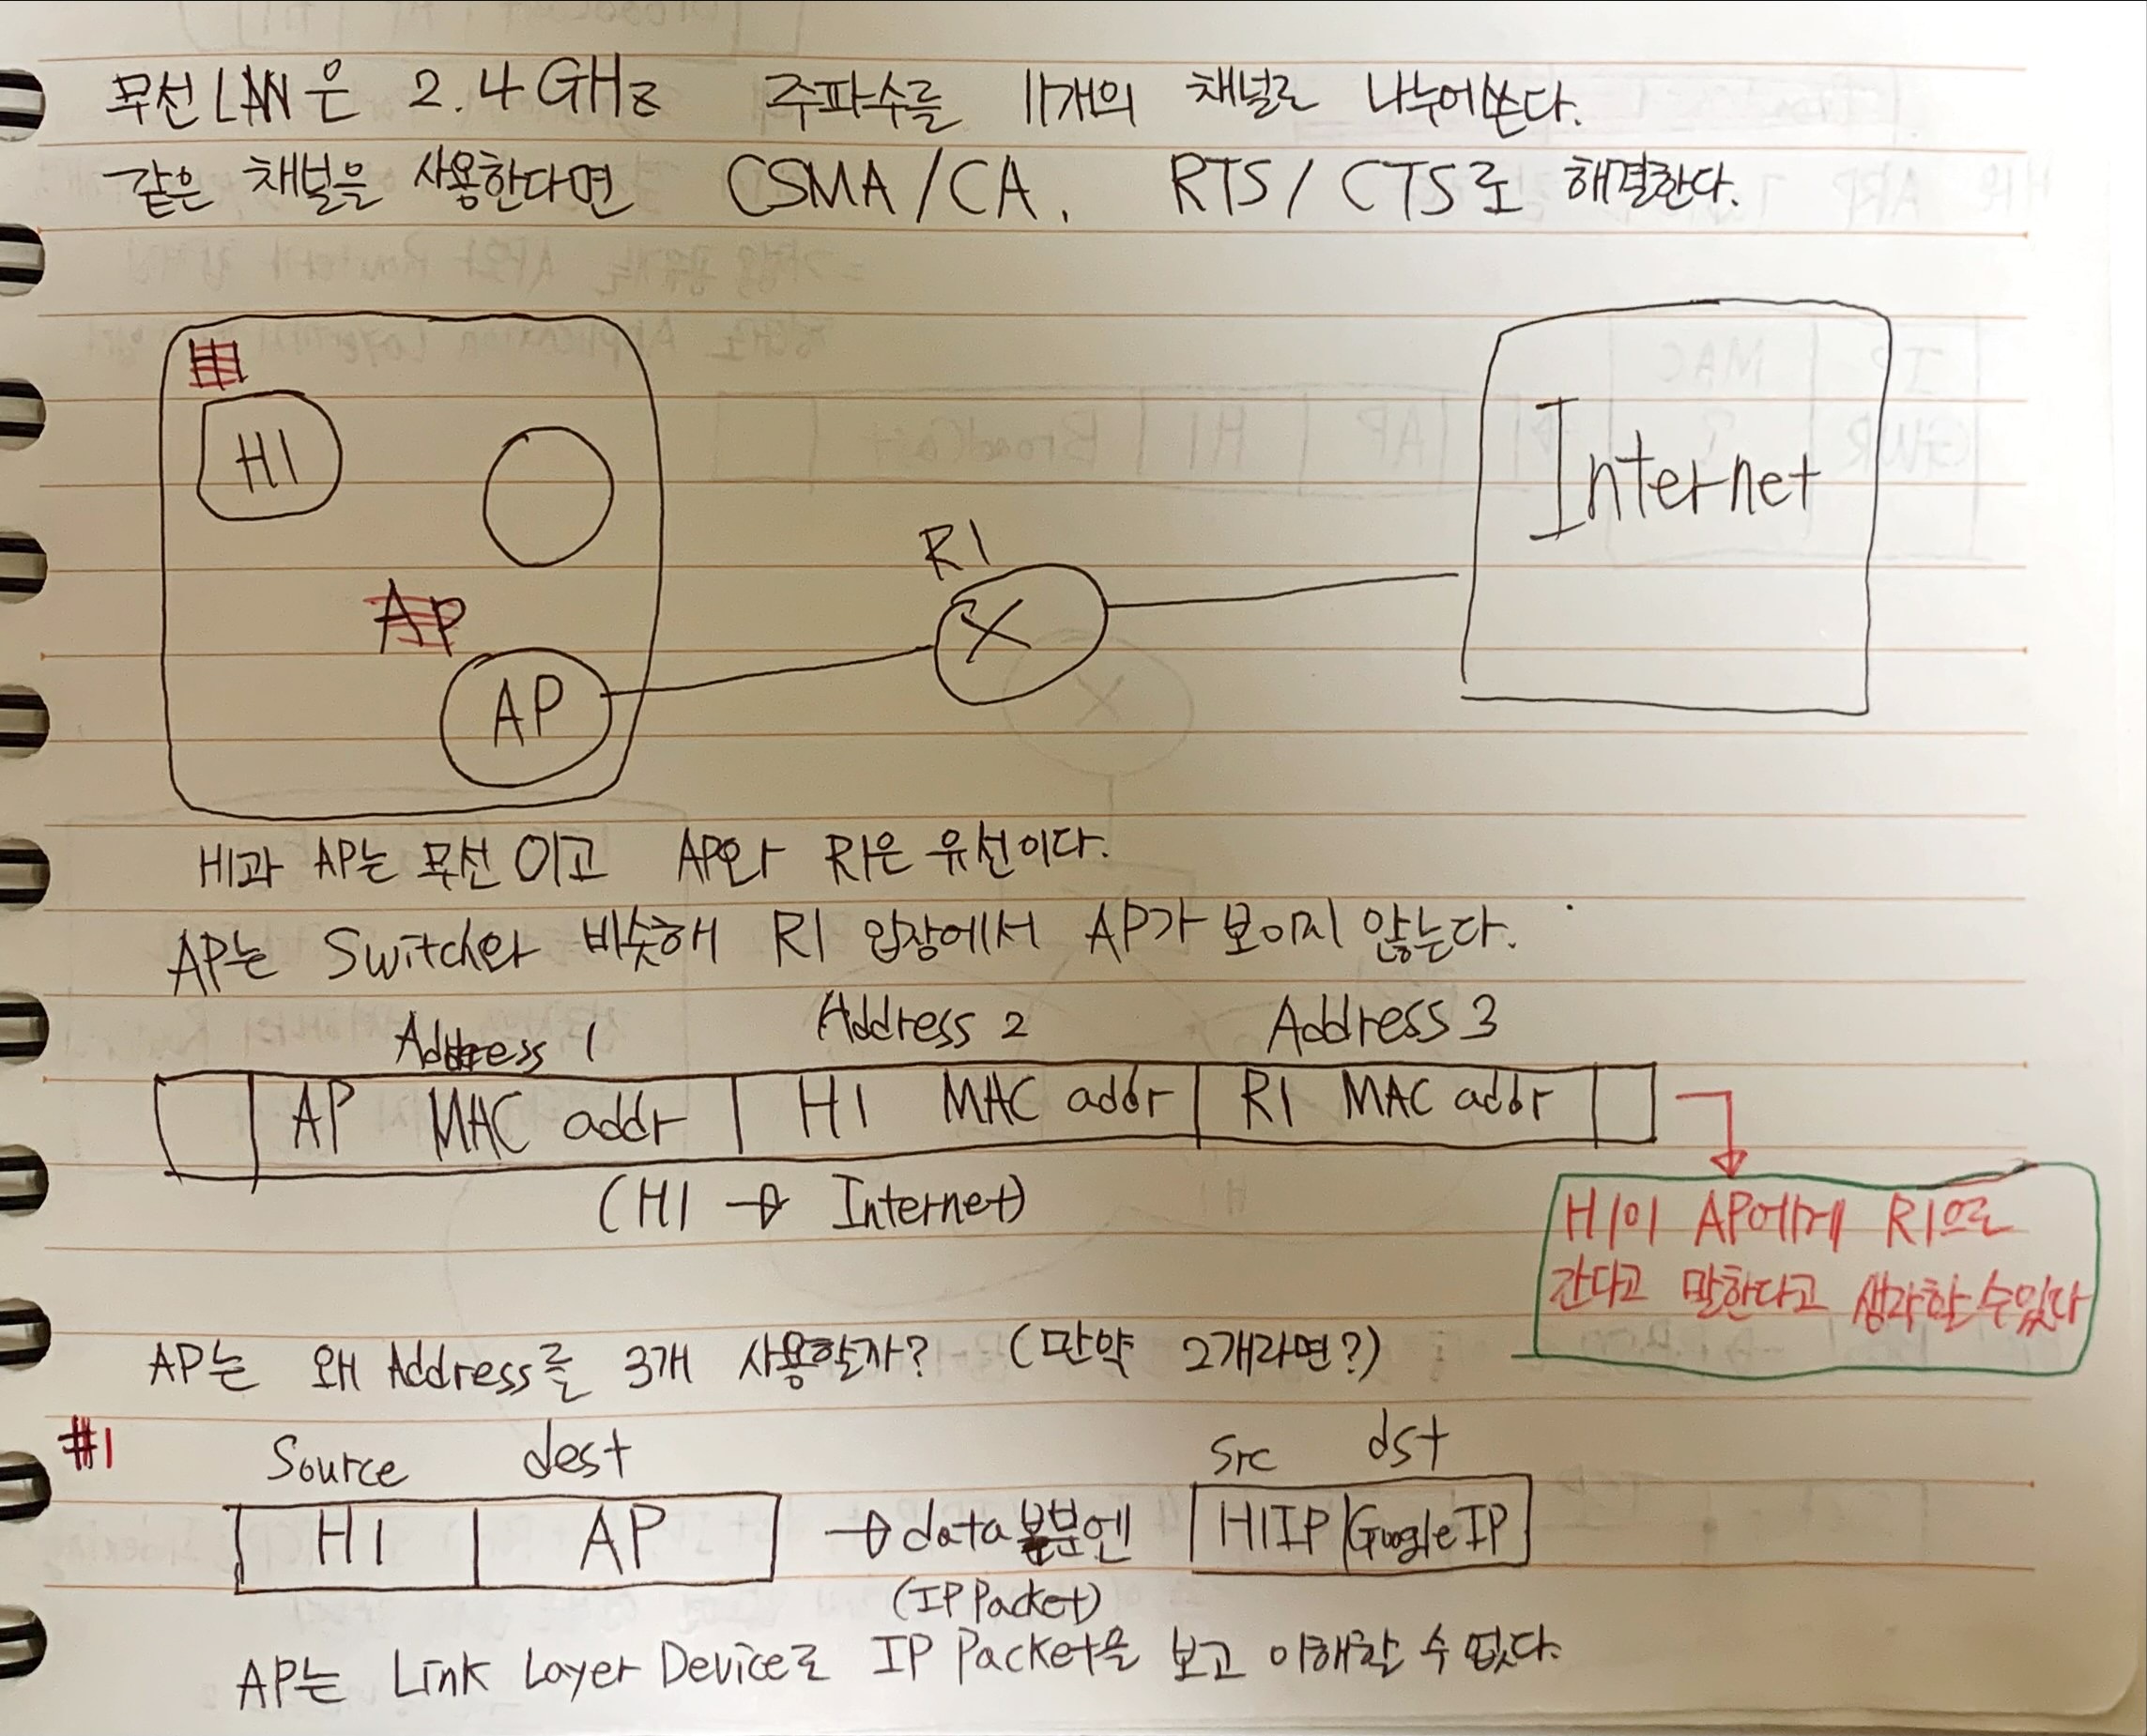 무선 LAN은 2.4GHz 주파수를 11개의 채널로 나누어쓴다.
같은 채널을 사용한다면 CSMA/CA, RTS/CTS로 해결한다.
H1
AP
AP
R1
X
Internet
H1과 AP는 무선이고 AP와 R1은 유선이다.
AP는 Switch와 비슷해 R1 입장에서 AP가 보이지 않는다.
Address 1 Address 2 Address 3
AP MAC addr H1 MAC addr R1 MAC addr
(H1 → Internet)
H1이 AP에게 R1으로
간다고 말한다고 생각할 수 있다
AP는 왜 Address를 3개 사용할까? (만약 2개라면?)
#1 Source dest src dst
H1 AP → data 부분엔 H1IP Google IP
(IP Packet)
AP는 Link Layer Device로 IP Packet을 보고 이해할 수 없다.